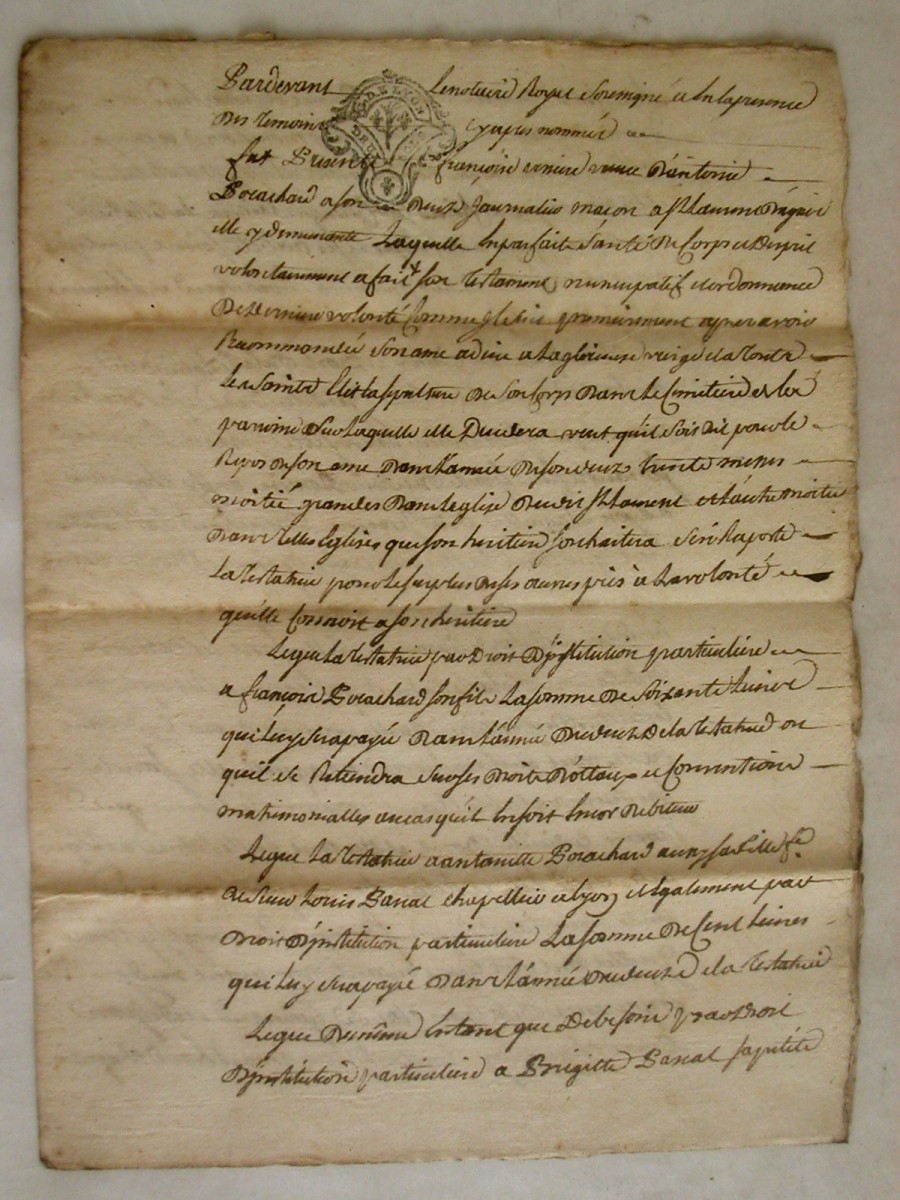 Pardevant Lenotaire Royal soussigné et Enlapresence
Des temoins cyapres nommés
fut Presente françoise veuve D'antoine
Borachard a son Deceds Journalier macon a St Laurent
elle y demeurante Laquelle Enparfaite Santé De Corps et Desprit
volontairement afait son testament nuncupatif et ordonnance
De Derniere volonté Comme premierement apres avoir
Recommandée Son ame a dieu a La glorieuse vierge et a toute
Les Saints Elit La sepulture De Son Corps Dans Le Cimetiere de la
paroisse Sur Laquelle elle Decedera veut qu'il soit dit pour le
Repos De son ame Dans L'année De son deceds trente messes
moitié grandes Dans L'eglise Du dit St Laurent et L'autre moitié
Dans telles Eglises que son heritier souhaitera S'en Raporte
La testatrice pour Le surplus De ses œuvres pies a La volonté
qu'elle Connoit a son heritiere
Legue La testatrice par Droit D'institution particuliere
a françois Borachard son fils La somme De soixante Livres
qui Luy sera payé Dans L'année Du deceds De la testatrice ou
qu'il se Retiendra sur ses Droits Dottaux et Conventions
matrimonialles au cas qu'il En soit Encor Debiteur
Legue La testatrice a antoinette Borachard aussy sa fille fe
De sieur Louis Pascal chapellier a lyon et Egalement par
Droit D'institution particuliere La somme De Cent Livres
qui Luy sera payé Dans L'année Du deceds De la testatrice
Legue De même Entant que De besoin par Droit
D'institution particuliere a Brigitte Pascal sa petite